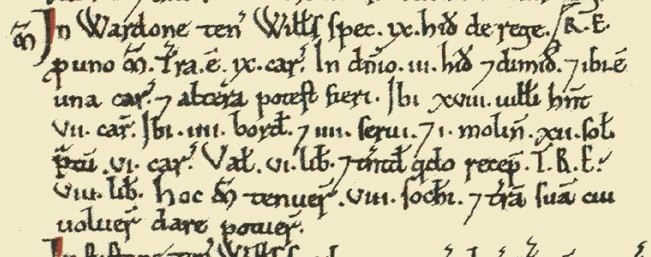 M̃ In Wardone ten' Witts spec. ix. hiđ de rege. T.R.E.
ꝓ uno M̃. Tr̃a.ē. ix. car'. In dñio. iii. hiđ ⁊ dimiđ. ⁊ ibi ē
una car'. ⁊ altera potest fieri. Ibi xviii. uilli hn̄t
vii. car'. Ibi. iiii. borđ. ⁊ iiii. serui. ⁊ i. molin̄. xii. sol.
p̃tū .vi. car'. Vał. vi. lib. ⁊ tn̄tđ qdo recep̄. T.R.E.
viii. lib. Hoc M̃ tenuer̄. viii. sochi. ⁊ tr̄ā suā cui
uoluer̄ dare potuer̄.